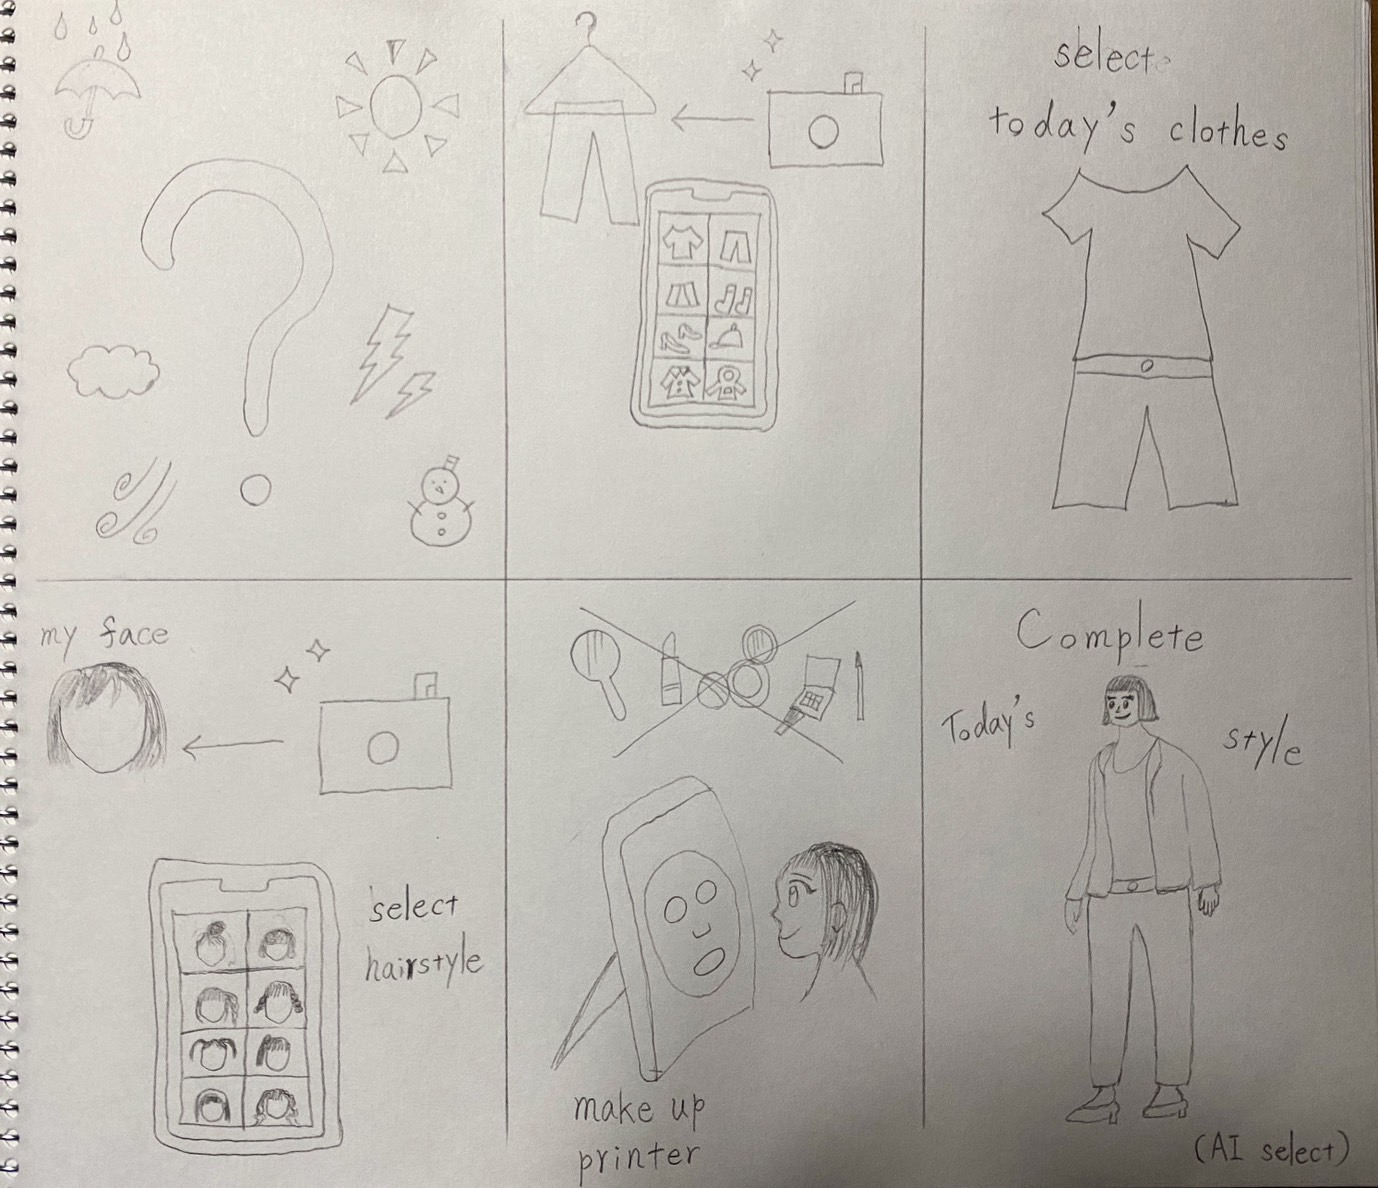 select
today's clothes
my face
select
hairstyle
make up
printer
Complete
Today's
style
(AI select)